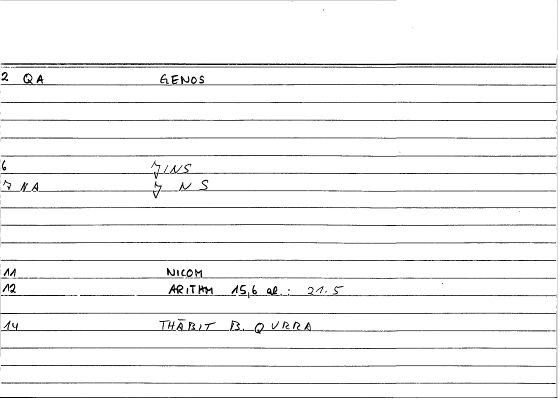 2 QA GENOS
6 ǦINS
7 NA Ǧ NS
11 NICOM
12 ARITHM 15,6 al.: 21.5
14 THĀBIT B. QURRA